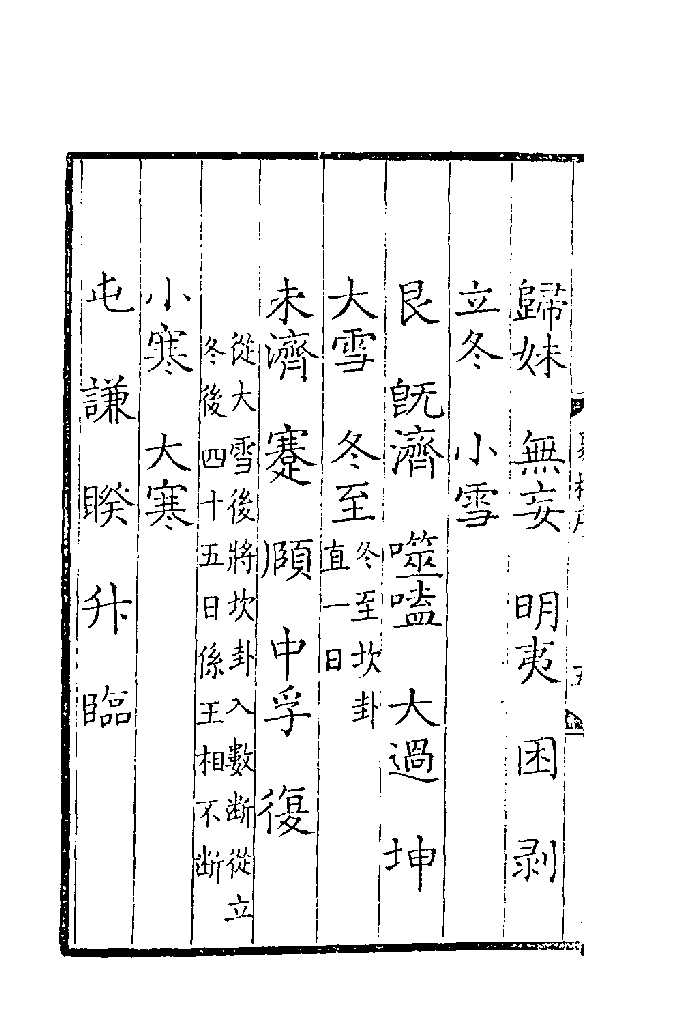 歸妹　無妄　明夷　困　剥
立冬　小雪
艮　旣濟　噬嗑　大過　坤
大雪　冬至冬至坎卦直一日
未濟　蹇　頤　中孚　復
從大雪後將坎卦入數断從立
冬後四十五日係王相不断
小寒　大寒
屯　謙　睽　升　臨